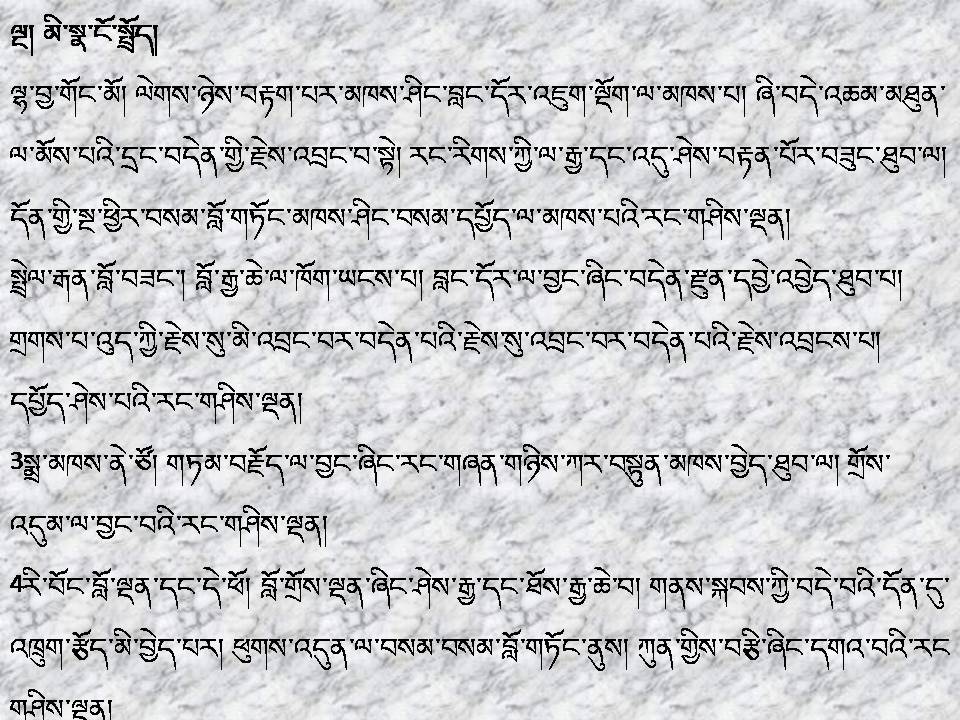 ལྔ། མི་སྣ་ངོ་སྤྲོད།
ལྷ་བྱ་གོང་མོ། ལེགས་ཉེས་བརྟག་པར་མཁས་ཤིང་བླང་དོར་འཇུག་ལྡོག་ལ་མཁས་པ། ཞི་བདེ་འཆམ་མཐུན་
ལ་མོས་པའི་དྲང་བདེན་གྱི་རྗེས་འབྲང་བ་སྟེ། རང་རིགས་ཀྱི་ལ་རྒྱ་དང་འདུ་ཤེས་བརྟན་པོར་བཟུང་ཐུབ་ལ།
དོན་གྱི་སྔ་ཕྱིར་བསམ་བློ་གཏོང་མཁས་ཤིང་བསམ་དཔྱོད་ལ་མཁས་པའི་རང་གཤིས་ལྡན།
སྤྲེལ་རྒན་བློ་བཟང་། བློ་རྒྱ་ཆེ་ལ་ཁོག་ཡངས་པ། བླང་དོར་ལ་བྱང་ཞིང་བདེན་རྫུན་དབྱེ་འབྱེད་ཐུབ་པ།
གྲགས་པ་འུད་ཀྱི་རྗེས་སུ་མི་འབྲང་བར་བདེན་པའི་རྗེས་སུ་འབྲང་བར་བདེན་པའི་རྗེས་འབྲངས་པ།
དཔྱོད་ཤེས་པའི་རང་གཤིས་ལྡན།
3སྨྲ་མཁས་ནེ་ཙོ། གཏམ་བརྗོད་ལ་བྱང་ཞིང་རང་གཞན་གཉིས་ཀར་བསྟུན་མཁས་བྱེད་ཐུབ་ལ། གྲོས་
འདུམ་ལ་བྱང་བའི་རང་གཤིས་ལྡན།
4རི་བོང་བློ་ལྡན་དང་དེ་ཕོ། བློ་གྲོས་ལྡན་ཞིང་ཤེས་རྒྱ་དང་ཐོས་རྒྱ་ཆེ་བ། གནས་སྐབས་ཀྱི་བདེ་བའི་དོན་དུ་
འཁྲུག་རྩོད་མི་བྱེད་པར། ཕུགས་འདུན་ལ་བསམ་བསམ་བློ་གཏོང་ནུས། ཀུན་གྱིས་བརྩི་ཞིང་དགའ་བའི་རང
གཤིས་ལྡན།